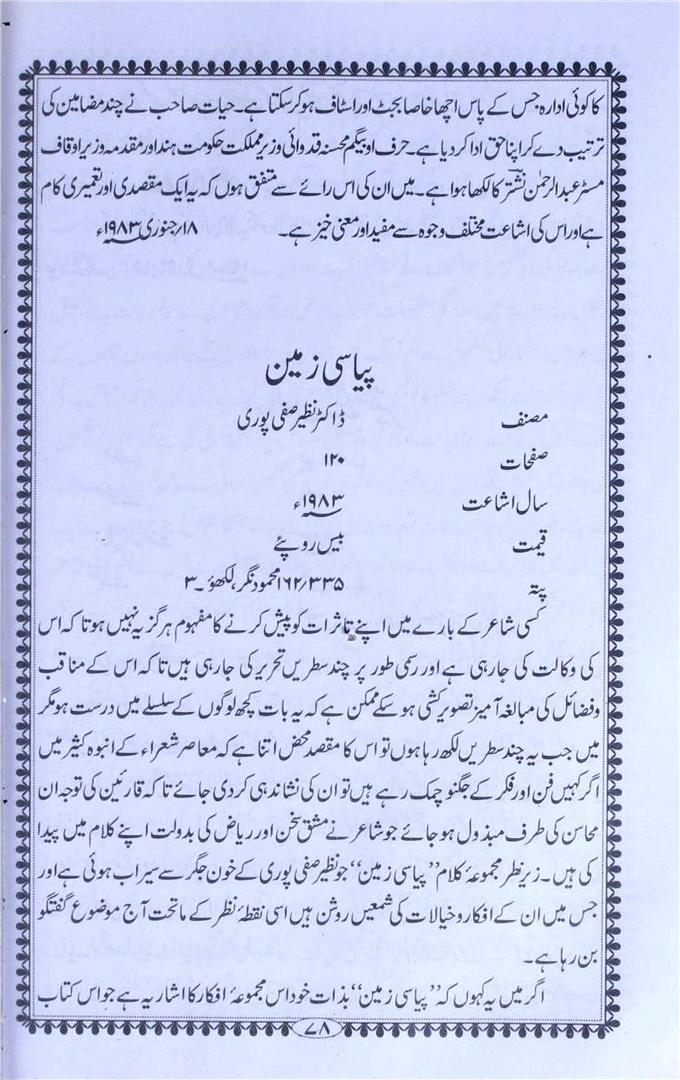 کا کوئی ادارہ جس کے پاس اچھا خاصا بجٹ اور اسٹاف ہو کر سکتا ہے۔ حیات صاحب نے چند مضامین کی
ترتیب دے کر اپنا حق ادا کر دیا ہے۔ حرف او بیگم محسنہ قدوائی وزیر مملکت حکومت ہند اور مقدمہ وزیر اوقاف
مسٹر عبدالرحمٰن نشترؔ کا لکھا ہوا ہے۔ میں ان کی اس رائے سے متفق ہوں کہ یہ ایک مقصدی اور تعمیری کام
ہے اور اس کی اشاعت مختلف وجوہ سے مفید اور معنی خیز ہے۔ ۱۸؍جنوری ۱۹۸۳ء
پیاسی زمین
مصنف ڈاکٹر نظیر صفی پوری
صفحات ۱۲۰
سال اشاعت ۱۹۸۳ء
قیمت بیس روپئے
پتہ ۱۶۲؍۳۳۵ محمود نگر، لکھؤ۔۳
کسی شاعر کے بارے میں اپنے تاثرات کو پیش کرنے کا مفہوم ہرگز یہ نہیں ہوتا کہ اس
کی وکالت کی جارہی ہے اور رسمی طور پر چند سطریں تحریر کی جارہی ہیں تا کہ اس کے مناقب
و فضائل کی مبالغہ آمیز تصویر کشی ہو سکے ممکن ہے کہ یہ بات کچھ لوگوں کے سلسلے میں درست ہو مگر
میں جب یہ چند سطریں لکھ رہا ہوں تو اس کا مقصد محض اتنا ہے کہ معاصر شعراء کے انبوہ کثیر میں
اگر کہیں فن اور فکر کے جگنو چمک رہے ہیں تو ان کی نشاندہی کر دی جائے تا کہ قارئین کی توجہ ان
محاسن کی طرف مبذول ہو جائے جو شاعر نے مشق سخن اور ریاض کی بدولت اپنے کلام میں پیدا
کی ہیں۔ زیر نظر مجموعۂ کلام ’’پیاسی زمین‘‘ جو نظیر صفی پوری کے خون جگر سے سیراب ہوئی ہے اور
جس میں ان کے افکار و خیالات کی شمعیں روشن ہیں اسی نقطۂ نظر کے ماتحت آج موضوع گفتگو
بن رہا ہے۔
اگر میں یہ کہوں کہ ’’پیاسی زمین‘‘ بذات خود اس مجموعۂ افکار کا اشاریہ ہے جو اس کتاب
۷۸